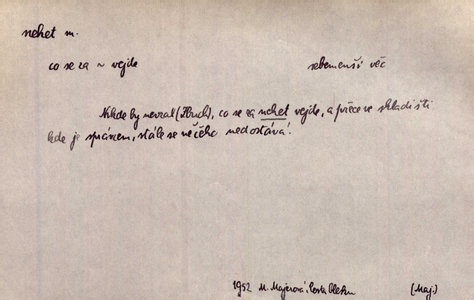 nehet m.
co se za ~ vejde sebemenší věc
Nikde by nevzal (Zbuch), co se za nehet vejde, a přece ve skladišti
kde je správcem, stále se něčeho nedostává.
1952 M. Majerová: Cesta blesku (Maj.)